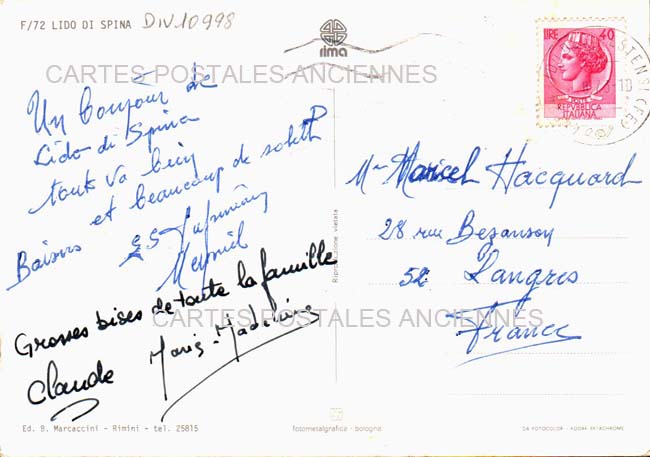 F/72 LIDO DI SPINA DIV10998
rima
LIRE 40
REPUBBLICA
ITALIANA
CARTES POSTALES ANCIENNES
Un bonjour de
Lido di Spina
tout va bien
Baisers et beaucoup de soleil
Grosses bises de toute la famille
Claude Marie-Madeleine
Mr Marcel Hacquard
28 rue Bezanson
52 Langres
France
CARTES POSTALES ANCIENNES
Riproduzione vietata
Ed. B. Marcaccini - Rimini - tel. 25815
fotometalgrafica - bologna
DA FOTOCOLOR - KODAK EKTACHROME